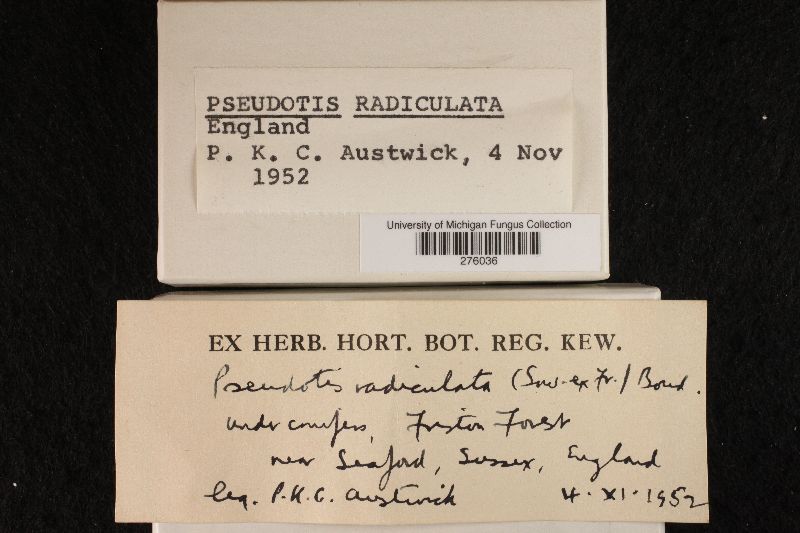 PSEUDOTIS RADICULATA
England
P. K. C. Austwick, 4 Nov
1952
University of Michigan Fungus Collection
276036
EX HERB. HORT. BOT. REG. KEW.
Pseudotis radiculata (Sow. ex Fr.) Boud.
under conifers, Friston Forest
near Seaford, Sussex, England
leg. P.K.C. Austwick 4.XI.1952